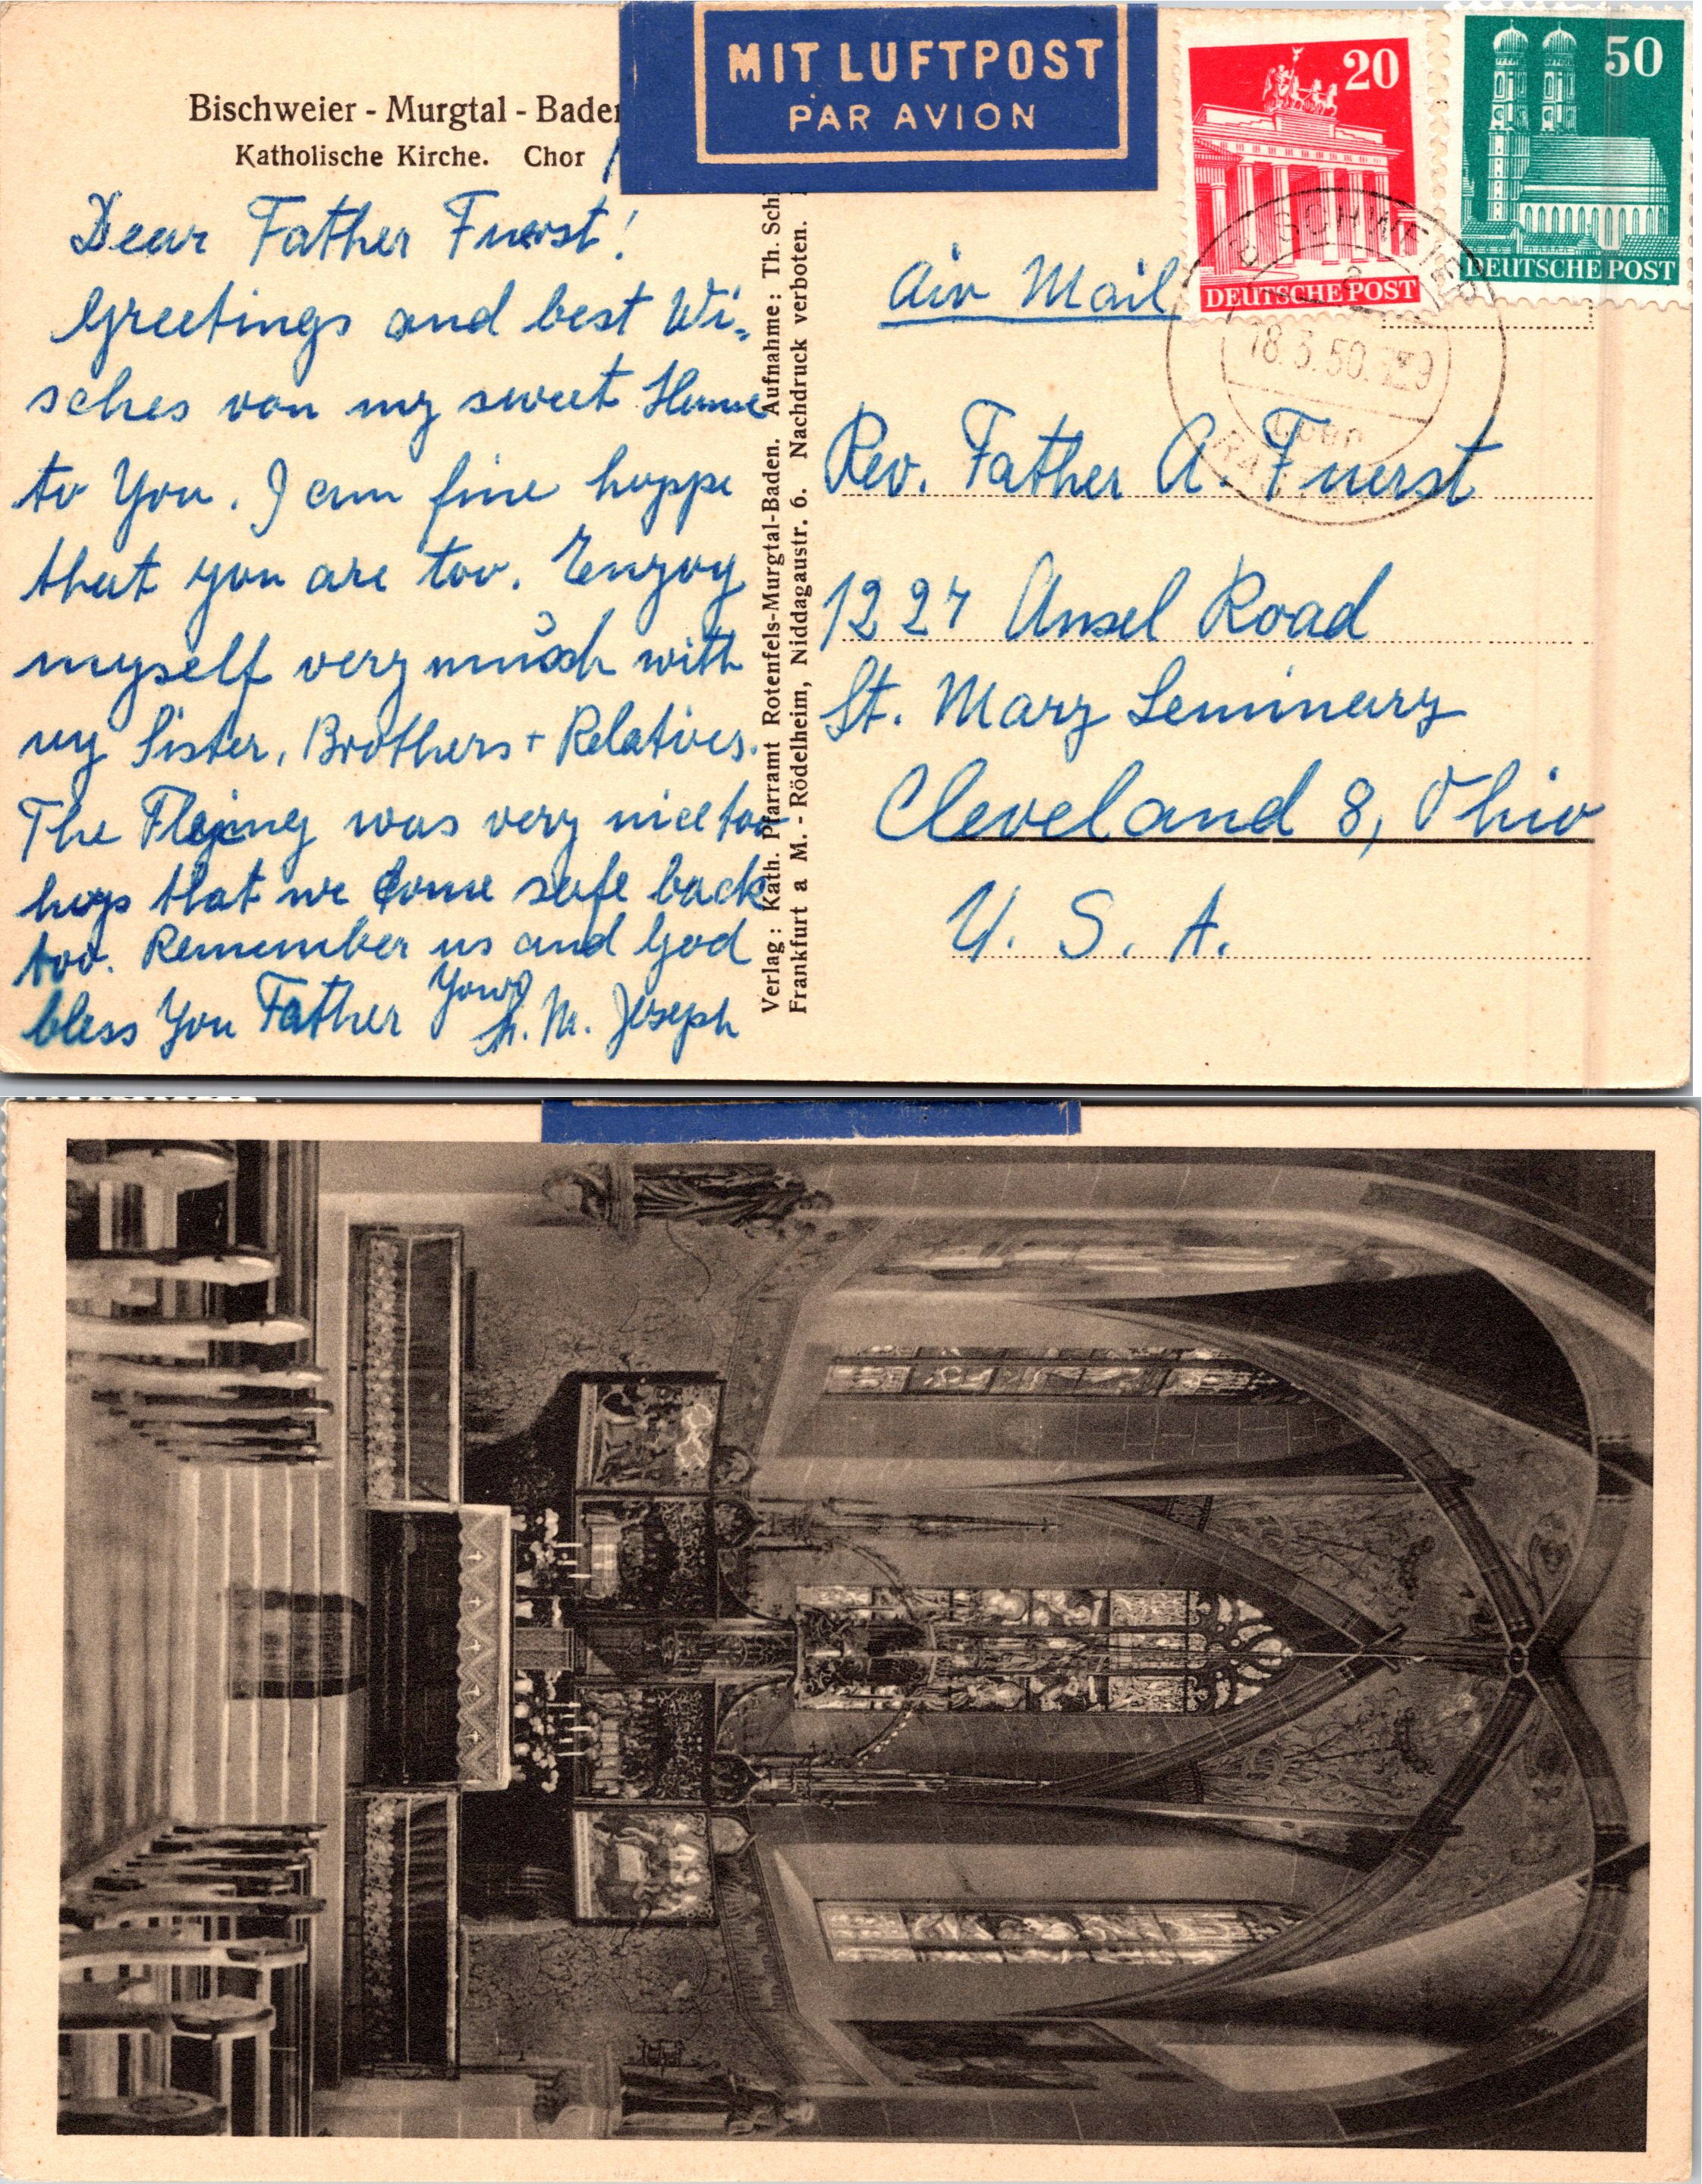 Bischweier - Murgtal - Baden
Katholische Kirche. Chor
MIT LUFTPOST
PAR AVION
20
DEUTSCHE POST
50
DEUTSCHE POST
BISCHWEIER
18.3.50.
über
Dear Father Fuerst!
Greetings and best Wi-
sches von my sweet Home
to You. I am fine hoppe
that you are too. Enyoy
myself very much with
my Sister, Brothers + Relatives.
The Flying was very nice too
hope that we come safe back
too. Remember us and God
bless You Father Yours
M. Joseph
Verlag: Kath. Pfarramt Rotenfels-Murgtal-Baden. Aufnahme: Th. Sch
Frankfurt a M. - Rödelheim, Niddagaustr. 6. Nachdruck verboten.
Air Mail
Rev. Father A. Fuerst
1227 Ansel Road
St. Mary Seminary
Cleveland 8, Ohio
U. S. A.